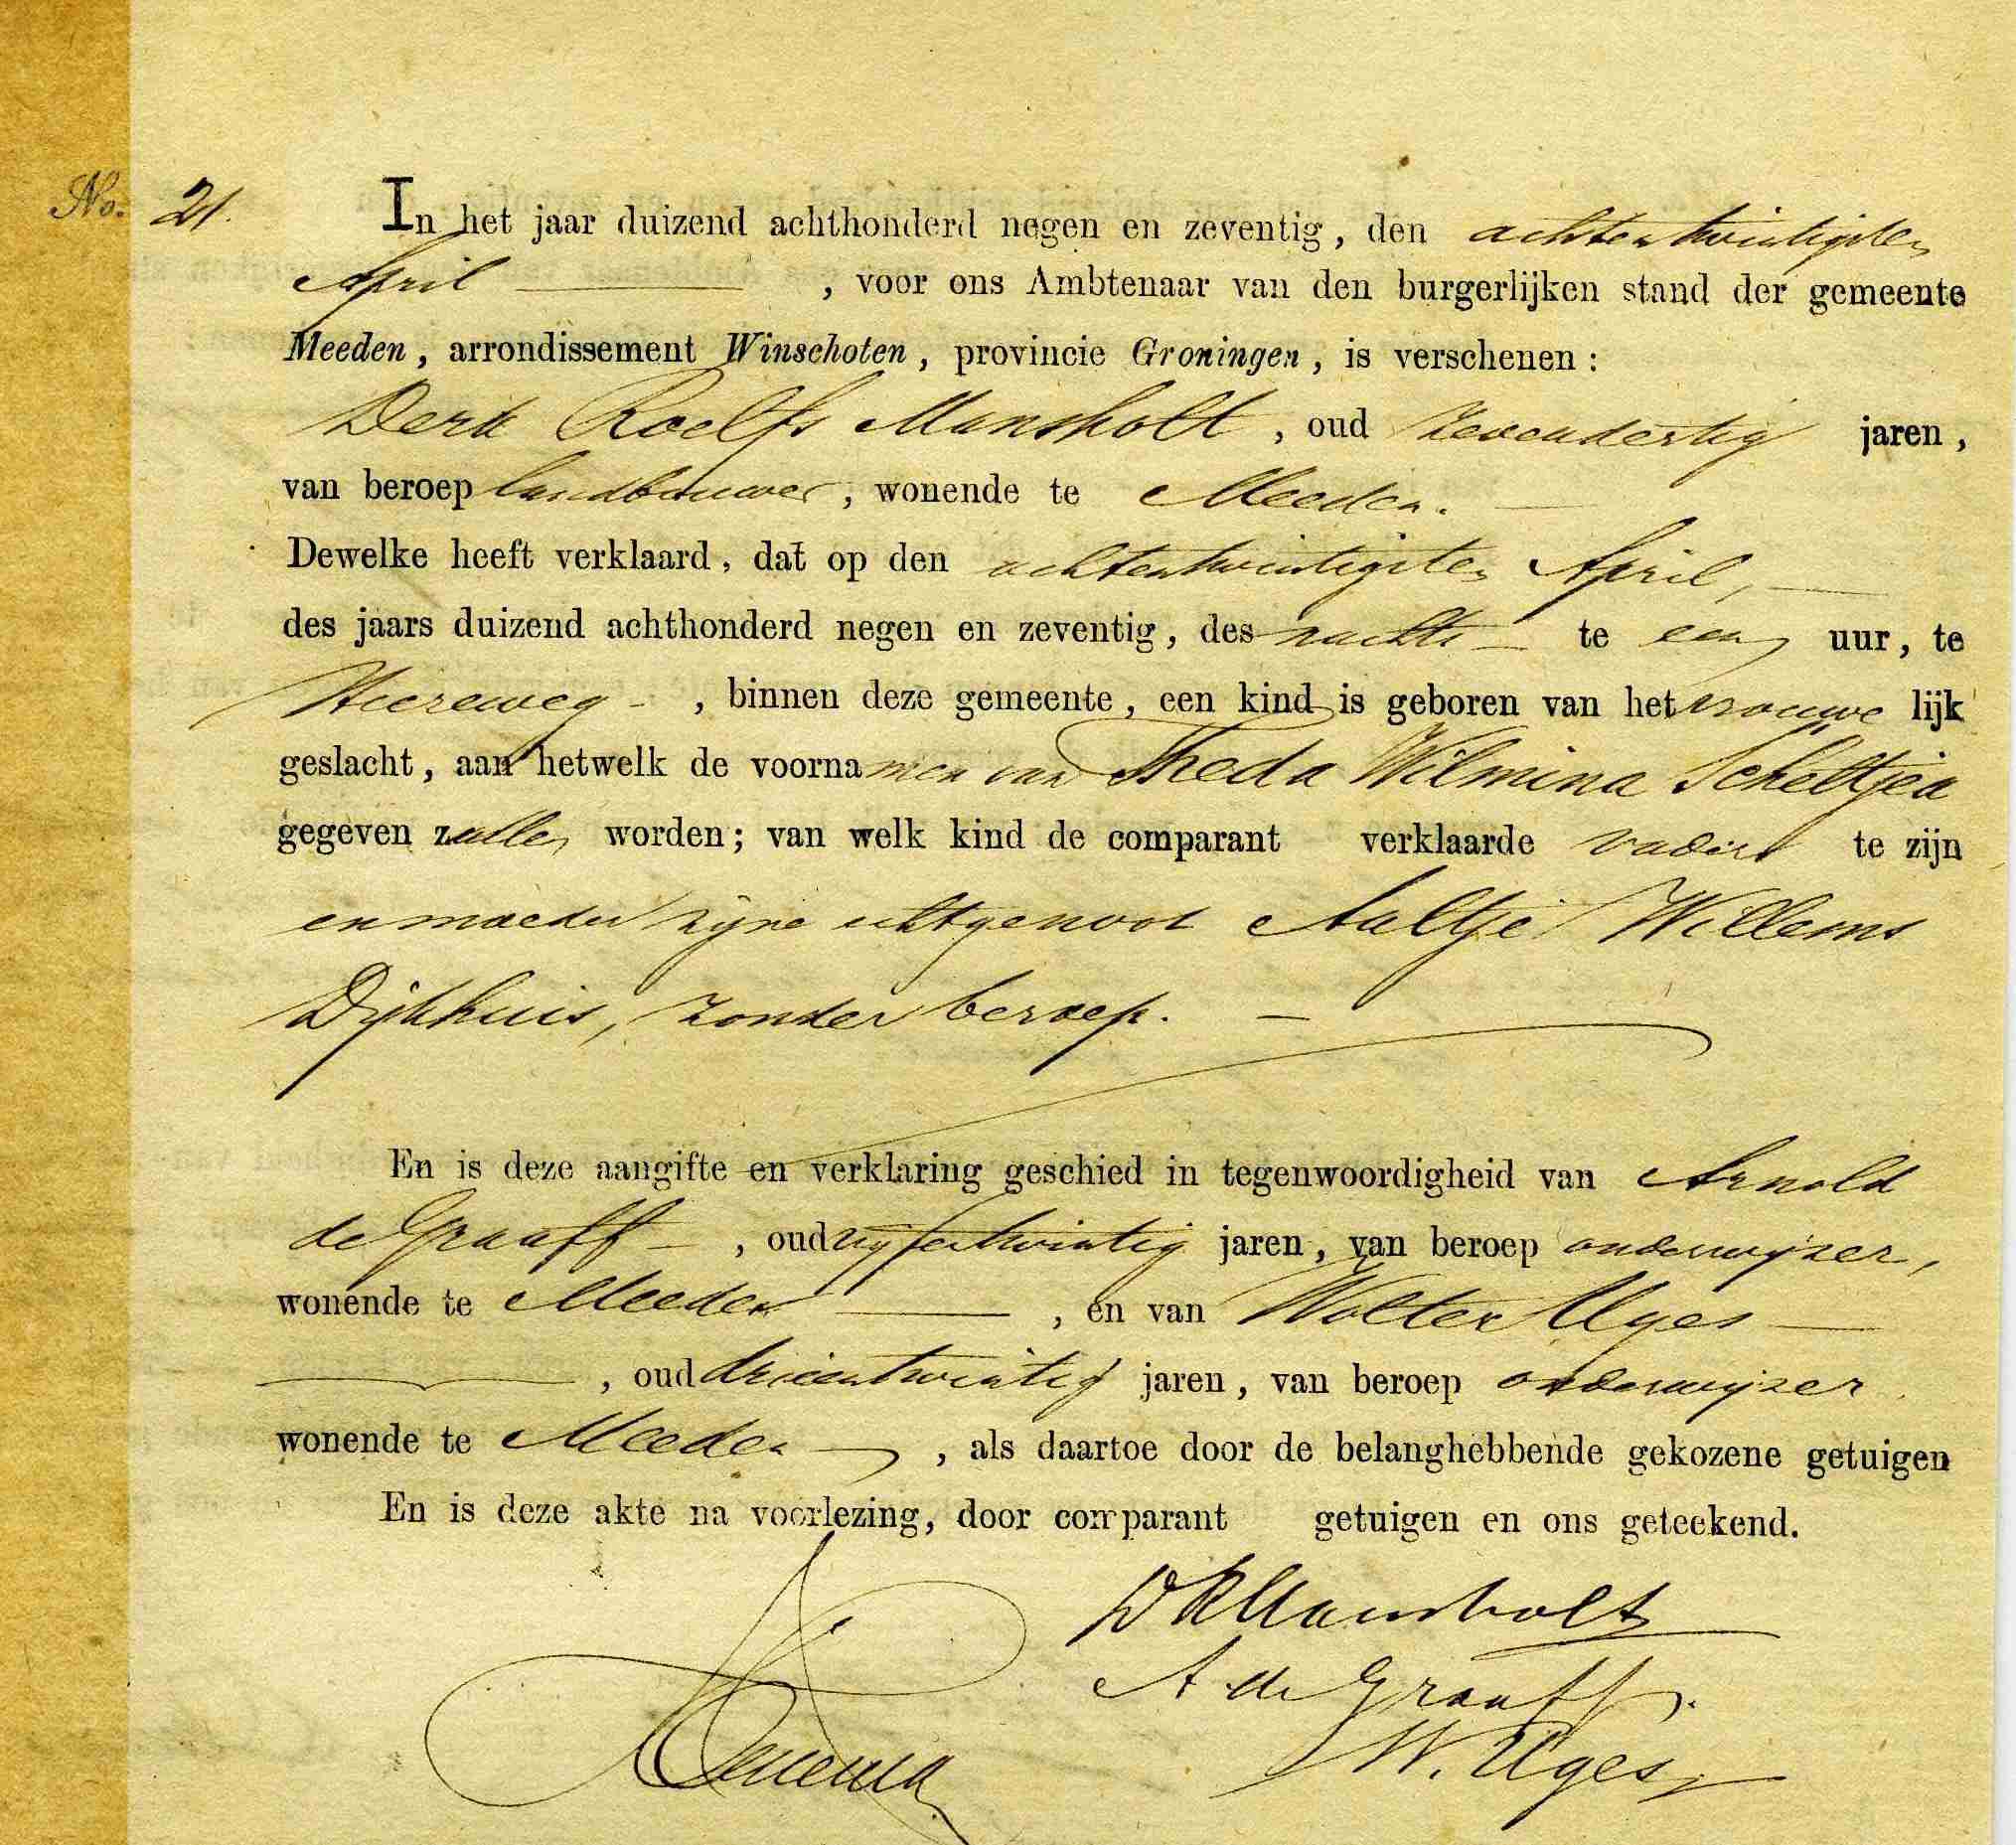 No. 21.
In het jaar duizend achthonderd negen en zeventig, den achtentwintigsten
April , voor ons Ambtenaar van den burgerlijken stand der gemeente
Meeden, arrondissement Winschoten, provincie Groningen, is verschenen:
Derk Roelfs Mansholt, oud zevendertig jaren,
van beroep landbouwer, wonende te Meeden.
Dewelke heeft verklaard, dat op den achtentwintigsten April,
des jaars duizend achthonderd negen en zeventig, des nachts te een uur, te
Heereweg, binnen deze gemeente, een kind is geboren van het vrouwelijk
geslacht, aan hetwelk de voornamen van Theda Wilmina Scheltjea
gegeven zullen worden; van welk kind de comparant verklaarde vader te zijn
en moeder zijne echtgenoot Aaltje Willems
Dijkhuis, zonder beroep. —
En is deze aangifte en verklaring geschied in tegenwoordigheid van Arnold
de Graaff —, oud vijfentwintig jaren, van beroep onderwijzer,
wonende te Meeden —, en van Wolter Uges —
—, oud drieentwintig jaren, van beroep onderwijzer
wonende te Meeden —, als daartoe door de belanghebbende gekozene getuigen
En is deze akte na voorlezing, door comparant getuigen en ons geteekend.
DRMansholt
A de Graaff.
Venema
W. Uges